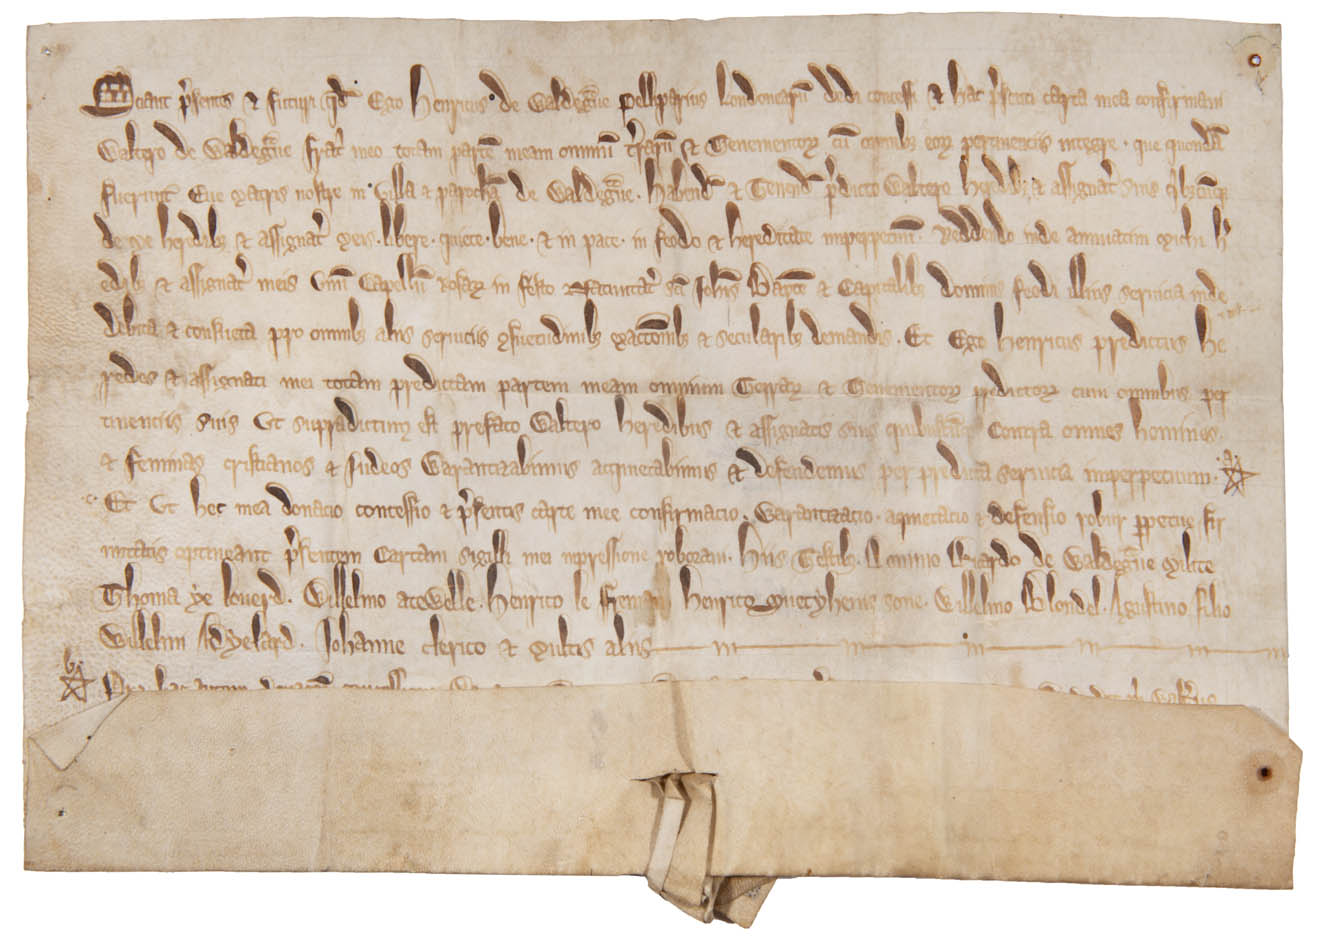 Sciant p'sentes & futuri q'd Ego Henricus de Waldegᵃue Pelliparius Londoniarū dedi concessi & hac p'senti carta mea confirmaui
Waltero de Waldegᵃue frat' meo totam partē meam omniū t'rarū & Tenementoꝝ cū omnibꝫ eoꝝ pertinenciis integre · que quondā
fuerunt Eue Matris nostre in Villa & parochia de Waldegᵃue · Habend' & Tenend' p'dicto Waltero heredibꝫ & assignat' suis
de me heredibꝫ & assignat' meis · libere · quiete · bene · & in pace · in feodo & hereditate imperpetuū · Reddendo inde annuatim michi h'
edibꝫ & assignat' meis Vnū Capellū Rosaꝝ in festo Natiuitat' sc̄i Joh'is Bapt̄e & Capitalibꝫ Dominis feodi illius seruicia inde
debita & consueta pro omnibꝫ aliis seruiciis ꝯsuetudinibꝫ exacc̄onibꝫ & secularibꝫ demandis · Et Ego Henricus predictus he
redes & assignati mei totam predictam partem meam omnium Terraꝝ & Tenementoꝝ predictoꝝ cum omnibus per
tinenciis suis Vt supradictum est prefato Waltero heredibus & assignatis suis quibuscūqꝫ Contra omnes homines ·
& feminas cristianos & Iudeos Warantizabimus acquietabimus & defendemus per predicta seruicia imperpetuum · a
Et Vt hec mea donacio concessio & p'sentis carte mee confirmacio · Warantizacio · aquietacio & defensio robur ꝑpetue fir
mitatis optineant p'sentem Cartam sigilli mei inpressione roboraui · Hiis Testibꝫ · Domino Ricardo de Waldegᵃue Milite
Thoma ye louerd · Willelmo atewelle · Henrico le Freman Henrico sone · Willelmo Blondel · Agustino filio
Willelmi Adyelard · Johanne clerico & Multis aliis
b